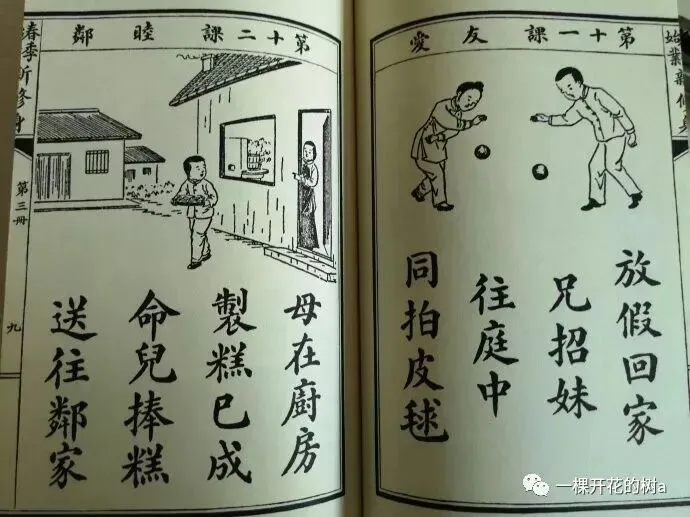 第十一課　友愛
放假回家
兄招妹
往庭中
同拍皮球
第十二課　睦鄰
母在廚房
製糕已成
命兒捧糕
送往鄰家
第三冊
九
一棵开花的树a